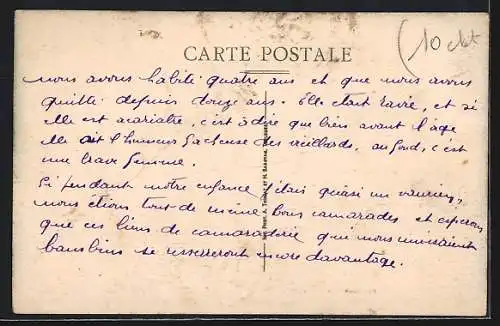 CARTE POSTALE
10 cht
nous avons habité quatre ans et que nous avons
quitté depuis douze ans. Elle était ravie, et si
elle est acariâtre, c'est à dire que bien avant l'âge
elle ait l'humeur fâcheuse des vieillards, au fond, c'est
une brave femme.
Si pendant notre enfance j'étais quasi un vaurien,
nous étions tout de même bons camarades et espérons
que ces liens de camaraderie qui nous unissaient
bambins se resserreront encore davantage.